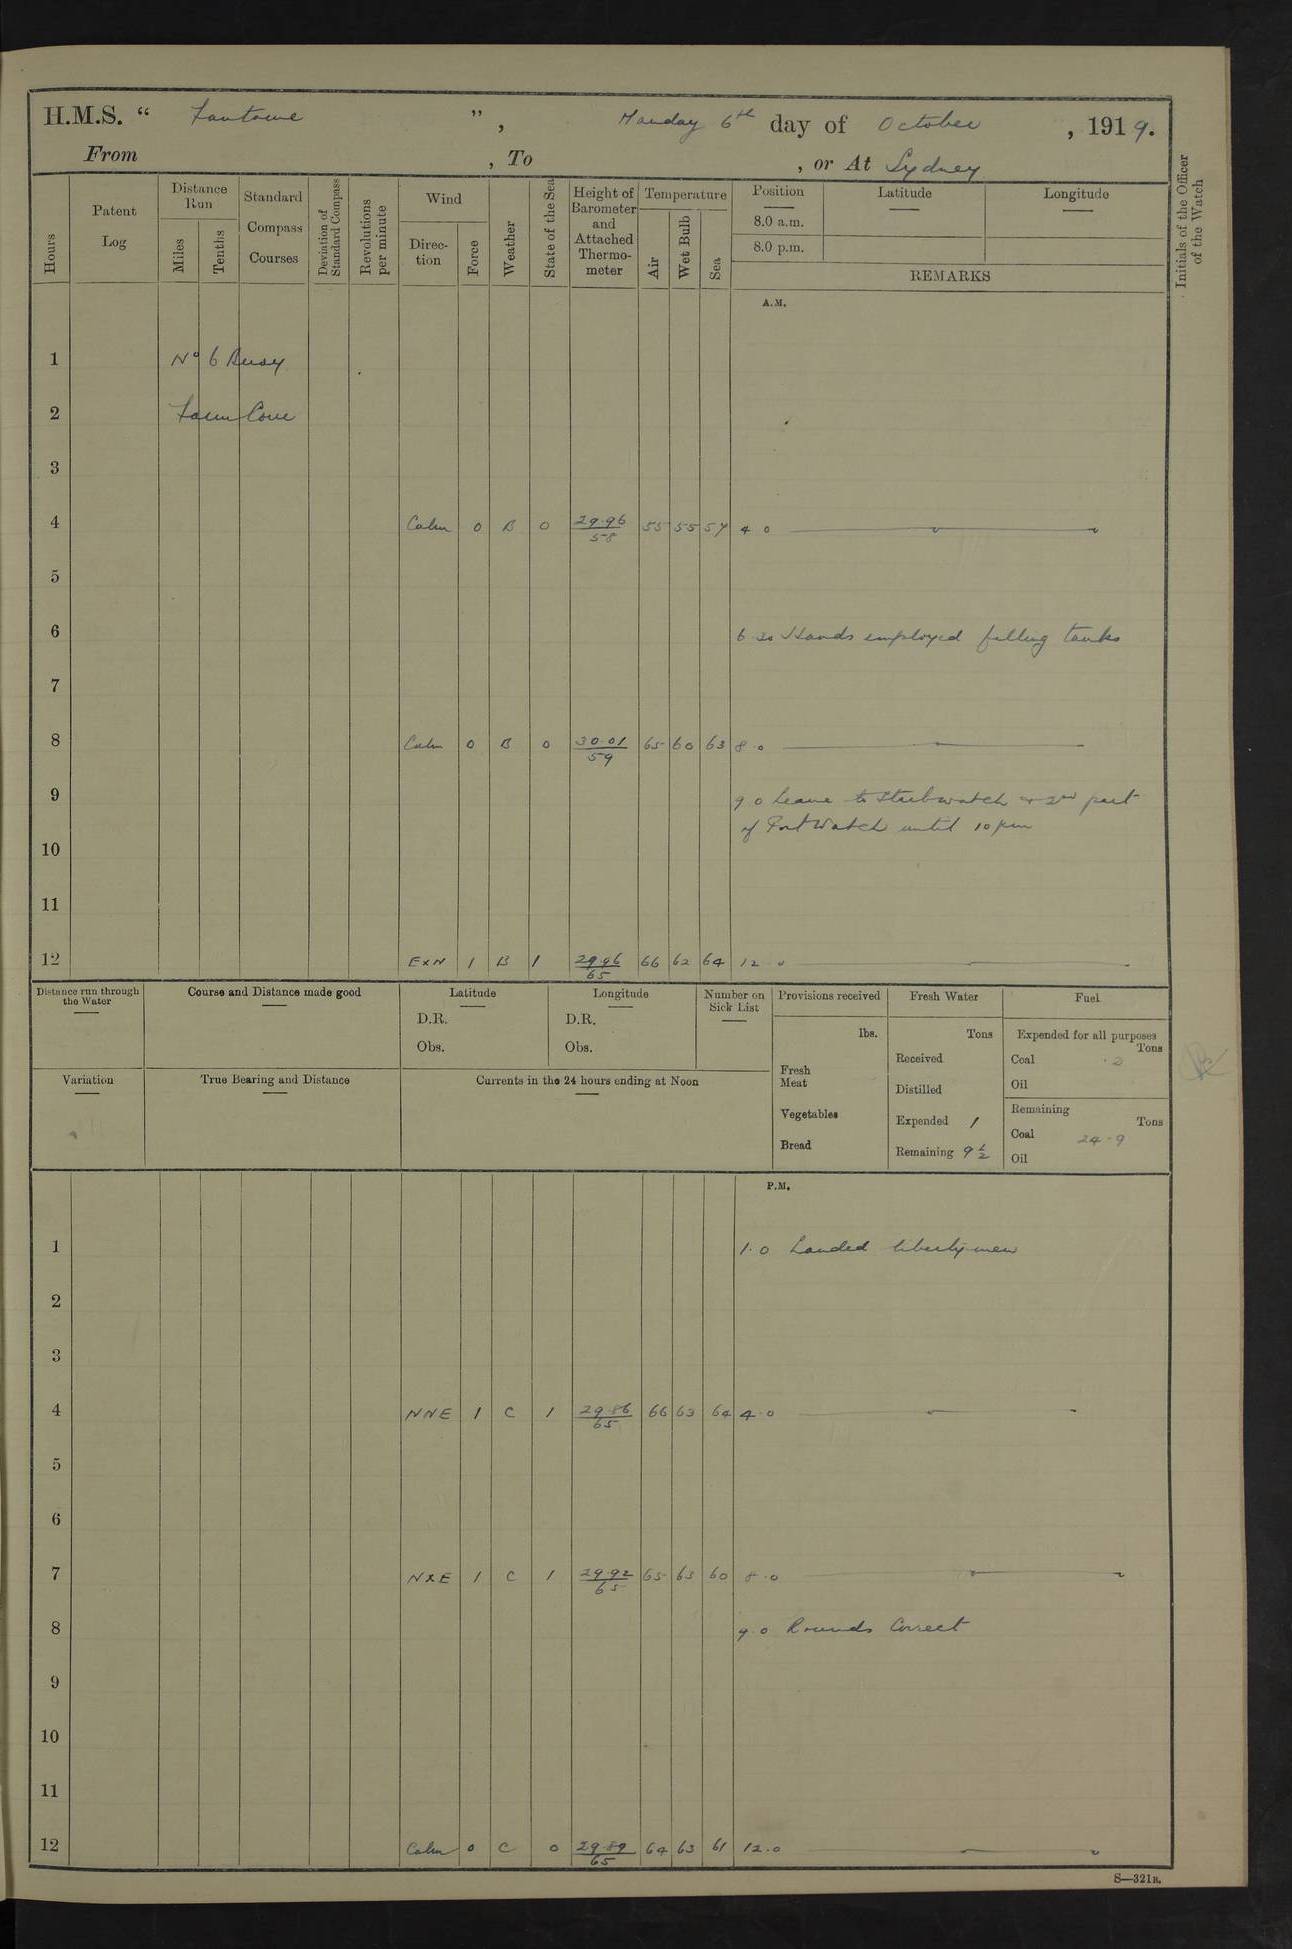 H.M.S. “ Fantome ”, Monday 6th day of October, 1919.
From , To , or At Sydney
Hours
Patent Log
Distance Run
Miles
Tenths
Standard Compass Courses
Deviation of Standard Compass
Revolutions per minute
Wind
Direction
Force
Weather
State of the Sea
Height of Barometer and Attached Thermometer
Temperature
Air
Wet Bulb
Sea
Position
Latitude
Longitude
8.0 a.m.
8.0 p.m.
REMARKS
Initials of the Officer of the Watch
A.M.
1 No 6 Buoy
2 Farm Cove
3
4 Calm 0 B 0 29.96/58 55 55 57 4 0
5
6 6 30 Hands employed filling tanks
7
8 Calm 0 B 0 30.01/59 65 60 63 8.0
9 9 0 Leave to Stbdwatch & 2nd part
of Port Watch until 10 pm
10
11
12 ExN 1 B 1 29.96/65 66 62 64 12 0
Distance run through the Water
Course and Distance made good
Latitude
D.R.
Obs.
Longitude
D.R.
Obs.
Number on Sick List
Provisions received
lbs.
Fresh Meat
Vegetables
Bread
Fresh Water
Tons
Received
Distilled
Expended 1
Remaining 9½
Fuel
Expended for all purposes
Tons
Coal .2
Oil
Remaining
Tons
Coal 24.9
Oil
Variation
True Bearing and Distance
Currents in the 24 hours ending at Noon
P.M.
1 1.0 Landed liberty men
2
3
4 NNE 1 C 1 29.86/65 66 63 64 4.0
5
6
7 NxE 1 C 1 29.92/65 65 63 60 8.0
8 9.0 Rounds Correct
9
10
11
12 Calm 0 C 0 29.89/65 64 63 61 12.0
S—321B.